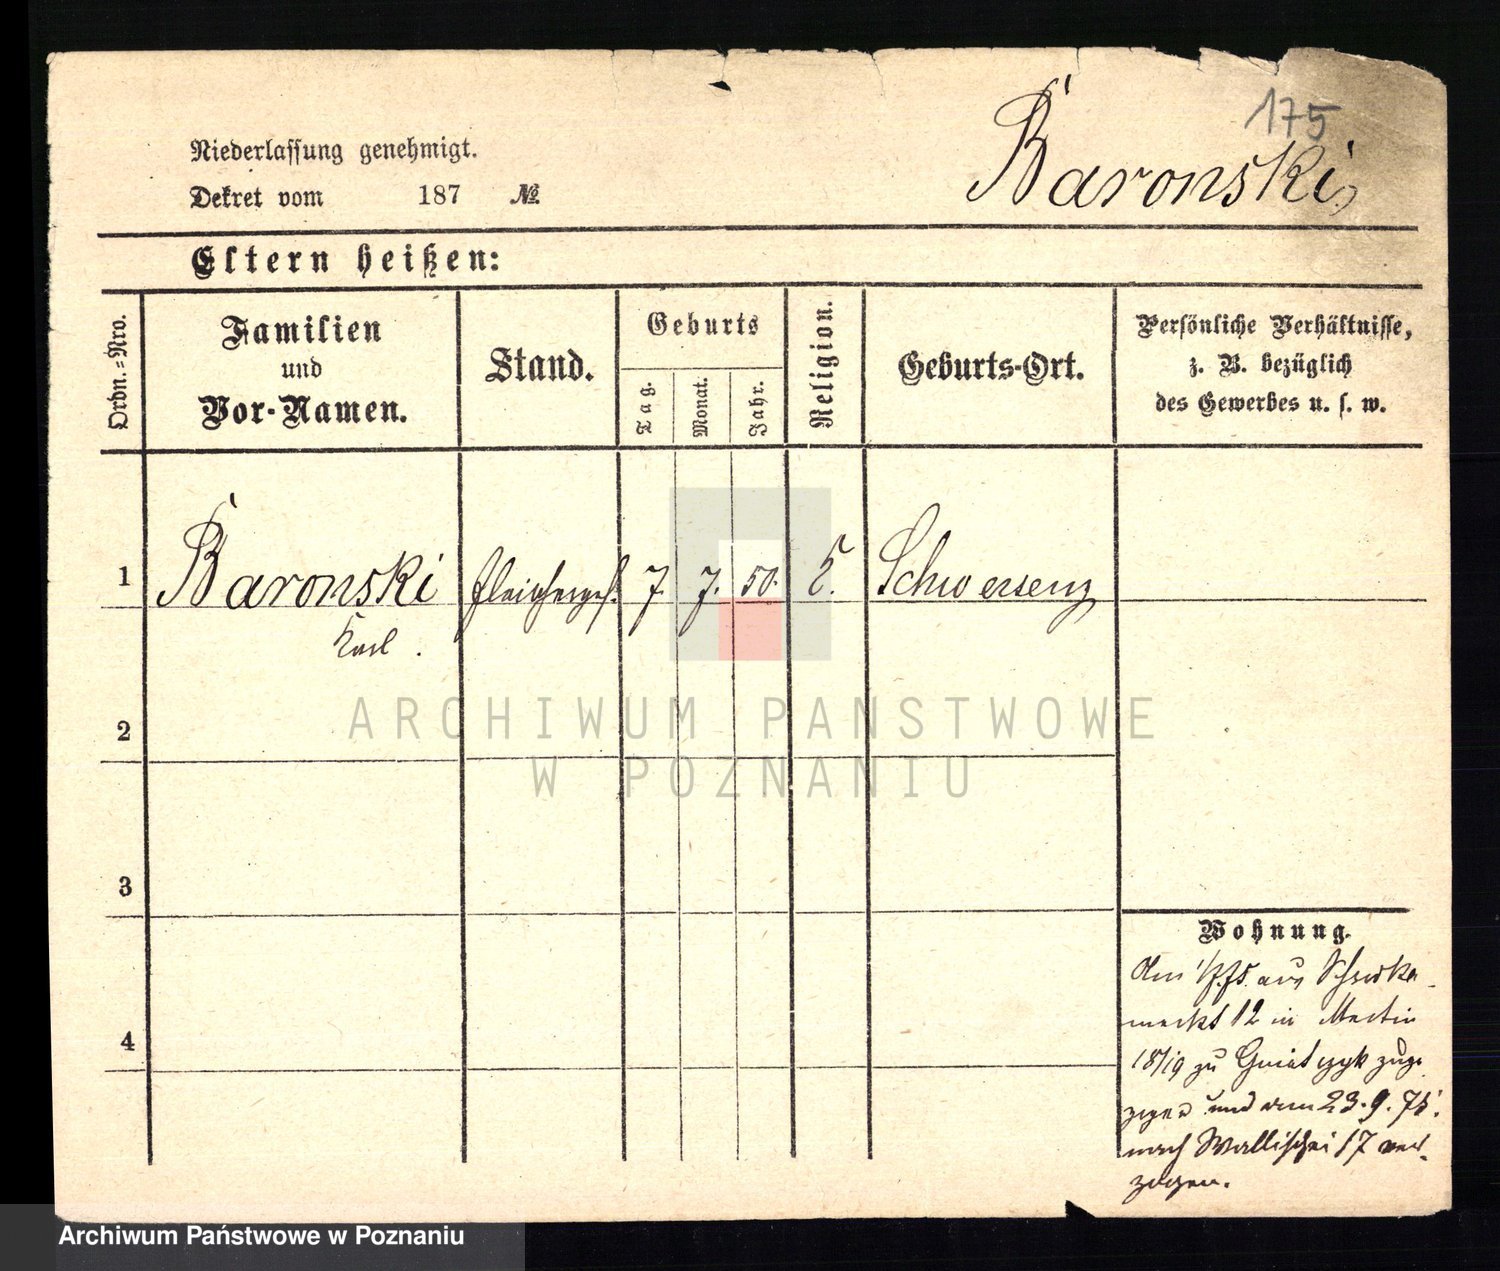 175
Baronski
Niederlassung genehmigt.
Dekret vom 187 №
Eltern heißen:
Ordn.-Nro.
Familien
und
Vor-Namen.
Stand.
Geburts
Tag.
Monat.
Jahr.
Religion.
Geburts-Ort.
Persönliche Verhältnisse,
z. B. bezüglich
des Gewerbes u. s. w.
1 Baronski Fleischerges. 7. 7. 50. Schwersenz
Karl.
2
ARCHIWUM PAŃSTWOWE
W POZNANIU
3
4
Wohnung.
Am aus Schrodka
markt 12 in Martin
18/19 zu zuge
zogen und am 23.9.75.
nach Wallischei 17 ver-
zogen.
Archiwum Państwowe w Poznaniu